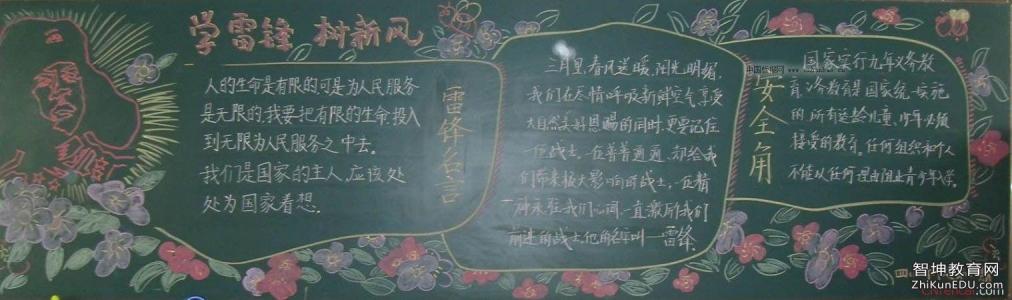 学雷锋 树新风
人的生命是有限的,可是为人民服务
是无限的,我要把有限的生命,投入
到无限为人民服务之中去。
我们是国家的主人,应该处
处为国家着想。
雷锋名言
三月里,春风送暖,阳光明媚,
我们在尽情呼吸新鲜空气享受
大自然美好恩赐的同时,更要记住
一位战士,一位普普通通,却给我
们带来极大影响的战士,一位精
神永在我们心间,一直激励我们
前进的战士,他的名字叫—雷锋。
安全角
国家实行九年义务教
育,义务教育是国家统一实施
的,所有适龄儿童,少年必须
接受的教育。任何组织和个人
不能以任何理由阻止青少年入学。
智坤教育网
ZhiKunEDU.com